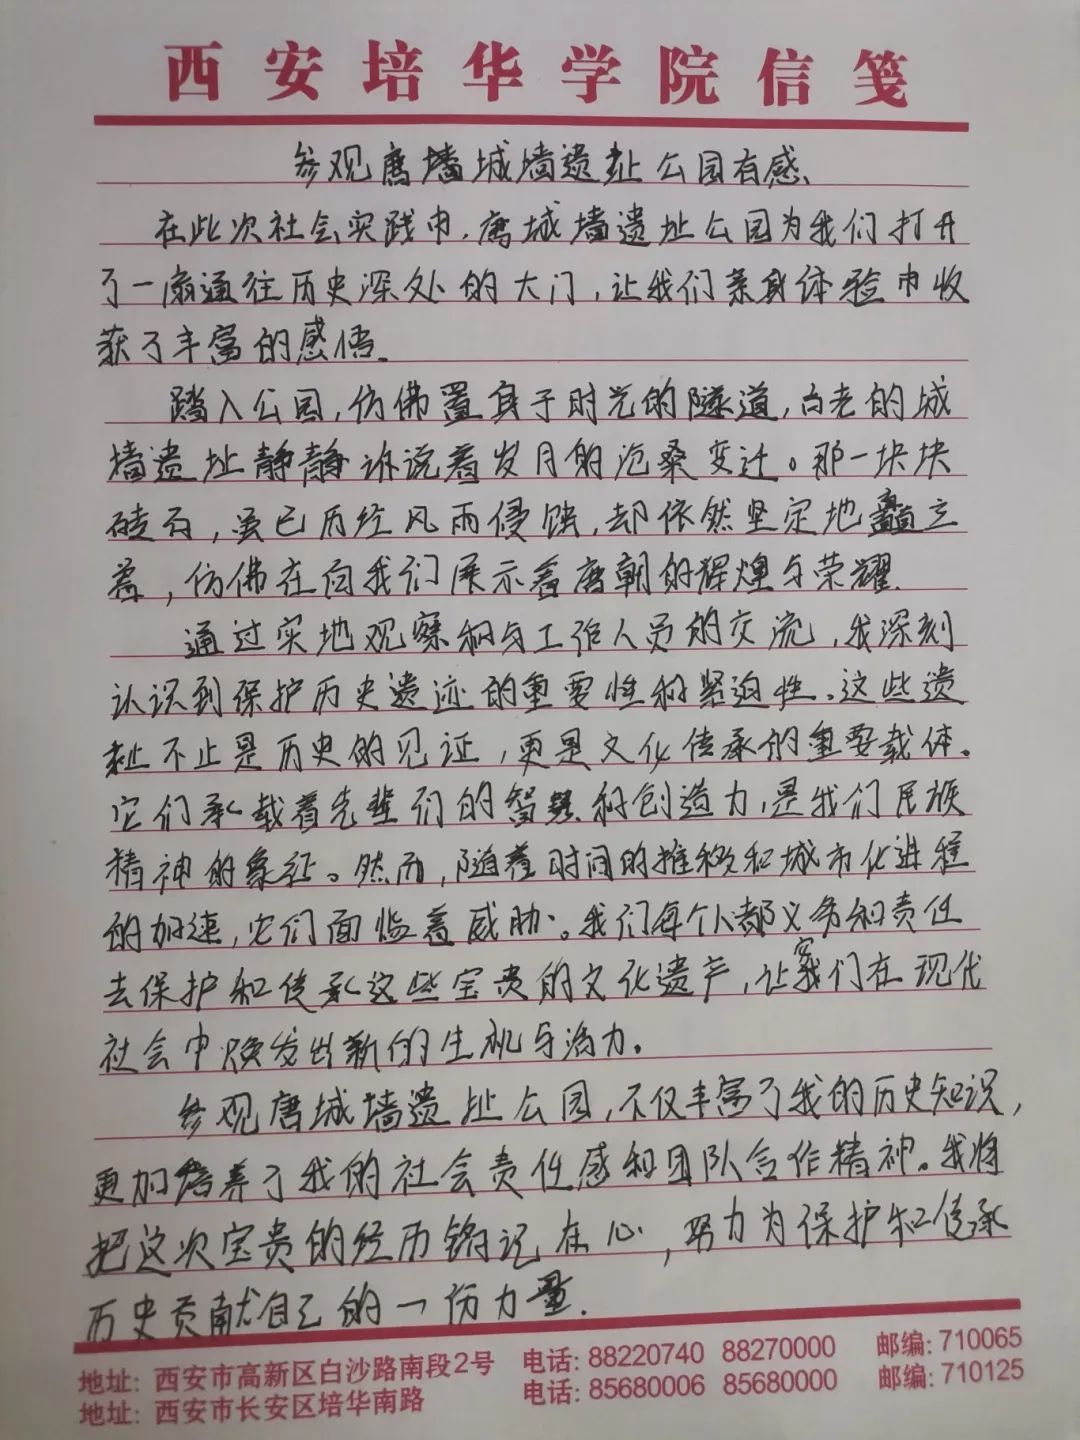 西安培华学院信笺
参观唐墙城墙遗址公园有感
在此次社会实践中,唐城墙遗址公园为我们打开
了一扇通往历史深处的大门,让我们亲身体验中收
获了丰富的感悟.
踏入公园,仿佛置身于时光的隧道,古老的城
墙遗址静静诉说着岁月的沧桑变迁。那一块块
砖石,虽已历经风雨侵蚀,却依然坚定地矗立
着,仿佛在向我们展示着唐朝的辉煌与荣耀.
通过实地观察和与工作人员的交流,我深刻
认识到保护历史遗迹的重要性和紧迫性。这些遗
址不止是历史的见证,更是文化传承的重要载体。
它们承载着先辈们的智慧和创造力,是我们民族
精神的象征。然而,随着时间的推移和城市化进程
的加速,它们面临着威胁。我们每个人都义务和责任
去保护和传承这些宝贵的文化遗产,让它们在现代
社会中焕发出新的生机与活力。
参观唐城墙遗址公园,不仅丰富了我的历史知识,
更加培养了我的社会责任感和团队合作精神。我将
把这次宝贵的经历铭记在心,努力为保护和传承
历史贡献自己的一份力量.
地址: 西安市高新区白沙路南段2号 电话: 88220740 88270000 邮编: 710065
地址: 西安市长安区培华南路 电话: 85680006 85680000 邮编: 710125